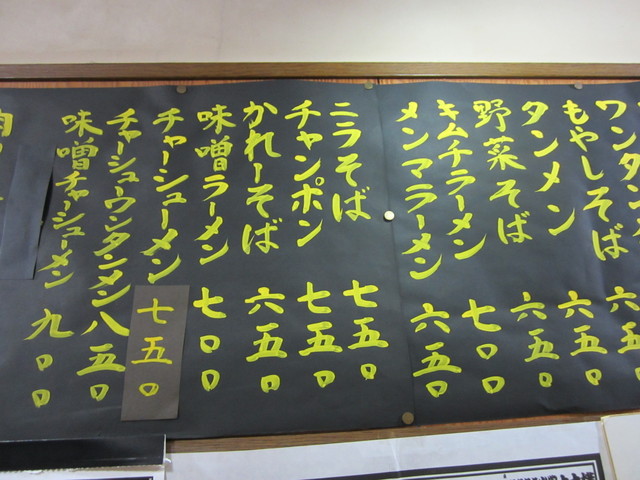 ワンタンメン 六五〇
もやしそば 六五〇
タンメン 六五〇
野菜そば 七〇〇
キムチラーメン 七〇〇
メンマラーメン 六五〇
ニラそば 七五〇
チャンポン 七五〇
かれーそば 六五〇
味噌ラーメン 七〇〇
チャーシューメン 七五〇
チャーシューワンタンメン 八五〇
味噌チャーシューメン 九〇〇